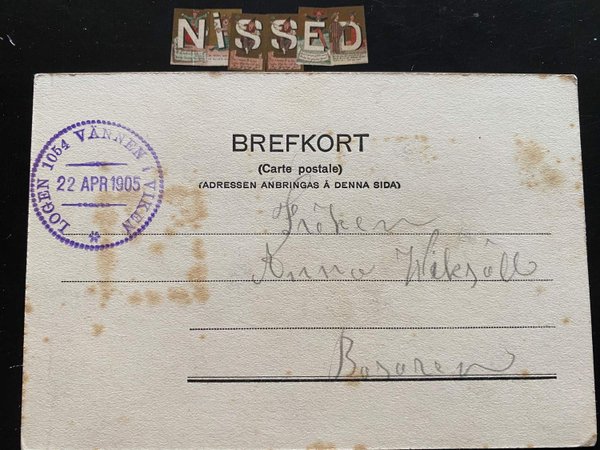 NiSSED
LOGEN 1054 VÄNNEN I VIKEN
22 APR 1905
BREFKORT
(Carte postale)
(ADRESSEN ANBRINGAS Å DENNA SIDA)
Fröken
Anna Wiksöll
Basaren